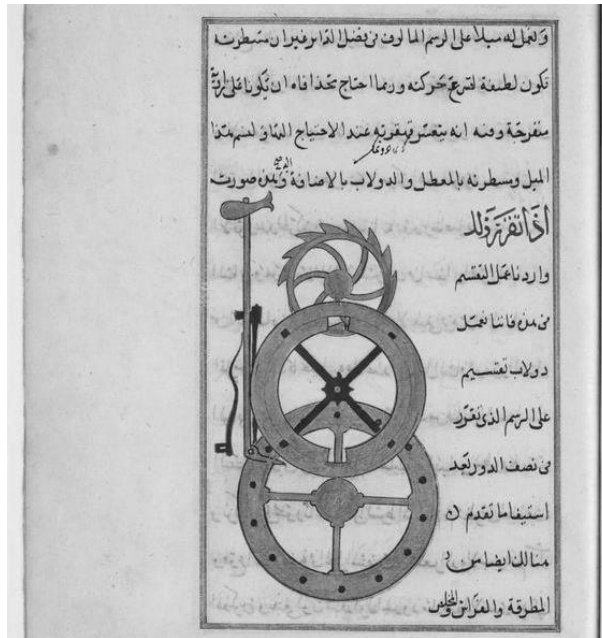 ونعمل له ميلا على الرسم المالوف من فضل الداير غيران مسطرته
تكون لطيفة لتسرع حركته وربما احتاج مخدافاه ان يكونا على
منفرجة ومنه انه يتعسر عند الاحتياج
الميل ومسطرته بالمعطل والدولاب بالاضافة وهذه صورت
اذا تقرر ذلك
واردنا عمل التقسيم
في هذه فاننا نعمل
دولاب تقسيم
على الرسم الذى تقرر
في نصف الدور بعد
استيفا ما تقدم
هنالك ايضا من
المطرقة والفراش